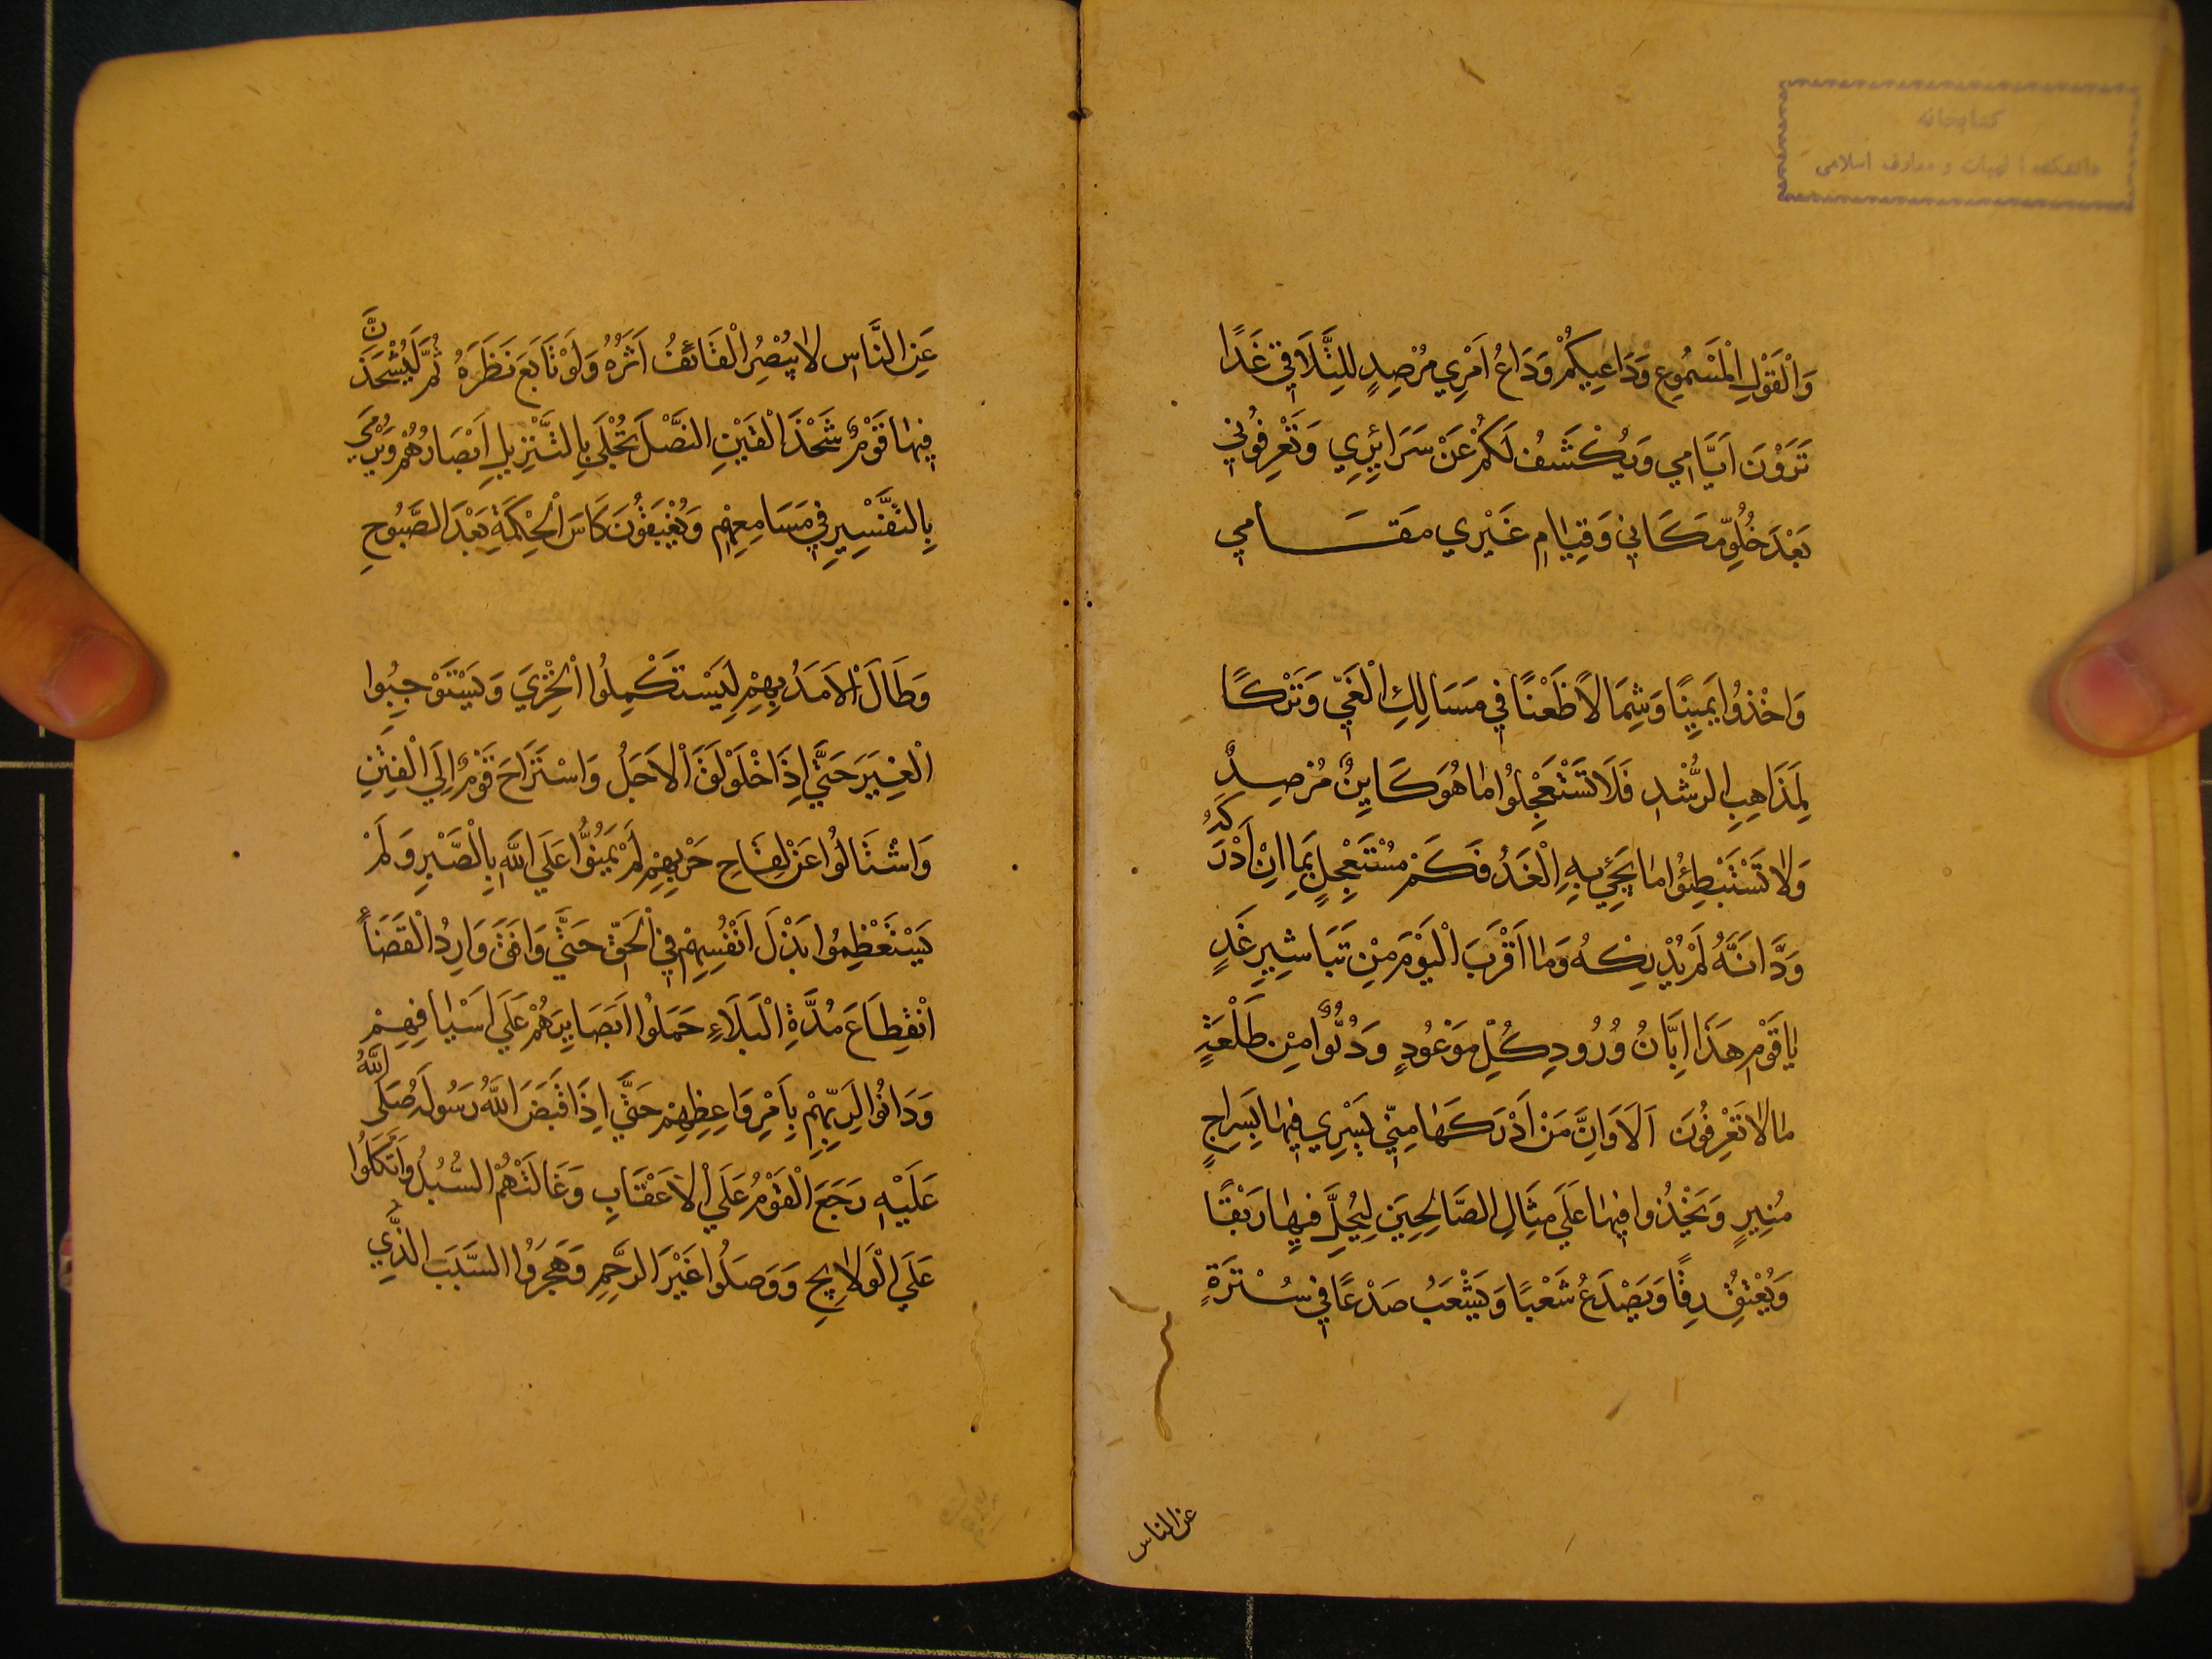 كتابخانه
دانشكده الهيات و معارف اسلامى
وَالْقَوْلِ الْمَسْمُوعِ وَدَاعِيكُمْ وَدَاعُ امْرِيٍ مُرْصِدٍ لِلتَّلَاقِي غَدًا
تَرَوْنَ اَيَّامِي وَيُكْشَفُ لَكُمْ عَنْ سَرَائِرِي وَتَعْرِفُونِي
بَعْدَ خُلُوِّ مَكَانِي وَقِيَامِ غَيْرِي مَقَامِي
وَاخْذُوا يَمِينًا وَشِمَالًا ظَعْنًا فِي مَسَالِكِ الْغَيِّ وَتَرْكًا
لِمَذَاهِبِ الرُّشْدِ فَلَا تَسْتَعْجِلُوا مَا هُوَ كَايِنٌ مُرْصِدٌ
وَلَا تَسْتَبْطِئُوا مَا يَجِئُ بِهِ الْغَدُ فَكَمْ مُسْتَعْجِلٍ بِمَا اِنْ اَدْرَكَهُ
وَدَّ اَنَّهُ لَمْ يُدْرِكْهُ وَمَا اَقْرَبَ الْيَوْمَ مِنْ تَبَاشِيرِ غَدٍ
يَا قَوْمِ هَذَا اِبَّانُ وُرُودِ كُلِّ مَوْعُودٍ وَدُنُوٍّ مِنْ طَلْعَةِ
مَا لَا تَعْرِفُونَ اَلَا وَاِنَّ مَنْ اَدْرَكَهَا مِنِّي يَسْرِي فِيهَا بِسَرَاجٍ
مُنِيرٍ وَيَحْذُوا فِيهَا عَلَي مِثَالِ الصَّالِحِينَ لِيُحِلَّ فِيهَا رَبْقًا
وَيُعْتِقُ رِقًّا وَيَصْدَعُ شَعْبًا وَيَشْعَبُ صَدْعًا فِي سُتْرَةٍ
عن الناس
عَنِ النَّاسِ لَا يُبْصِرُ الْقَائِفُ اَثَرَهُ وَلَوْ تَابَعَ نَظَرَهُ ثُمَّ لَيُشْحَذَنَّ
فِيهَا قَوْمٌ شَحْذَ الْقَيْنِ النَّصْلَ تُجْلَي بِالتَّنْزِيلِ اَبْصَارُهُمْ وَيُرْمَي
بِالتَّفْسِيرِ فِي مَسَامِعِهِمْ وَيُغْبَقُونَ كَاسَ الْحِكْمَةِ بَعْدَ الصَّبُوحِ
وَطَالَ الْاَمَدُ بِهِمْ لِيَسْتَكْمِلُوا الْخِزْيَ وَيَسْتَوْجِبُوا
الْغِيَرَ حَتَّي اِذَا اخْلَوْلَقَ الْاَجَلُ وَاسْتَرَاحَ قَوْمٌ اِلَي الْفِتَنِ
وَاشْتَالُوا عَنْ لِقَاحِ حَرْبِهِمْ لَمْ يَمُنُّوا عَلَي اللَّهِ بِالصَّبْرِ وَلَمْ
يَسْتَعْظِمُوا بَذْلَ اَنْفُسِهِمْ فِي الْحَقِّ حَتَّي وَافَقَ وَارِدُ الْقَضَاءِ
انْقِطَاعَ مُدَّةِ الْبَلَاءِ حَمَلُوا بَصَايِرَهُمْ عَلَي اَسْيَافِهِمْ
وَدَانُوا لِرَبِّهِمْ بِاَمْرِ وَاعِظِهِمْ حَتَّي اِذَا قَبَضَ اللَّهُ رَسُولَهُ صَلَّى اللَّهُ
عَلَيْهِ رَجَعَ الْقَوْمُ عَلَي الْاَعْقَابِ وَغَالَتْهُمُ السُّبُلُ وَاتَّكَلُوا
عَلَي الْوَلَايِجِ وَوَصَلُوا غَيْرَ الرَّحِمِ وَهَجَرُوا السَّبَبَ الَّذِي